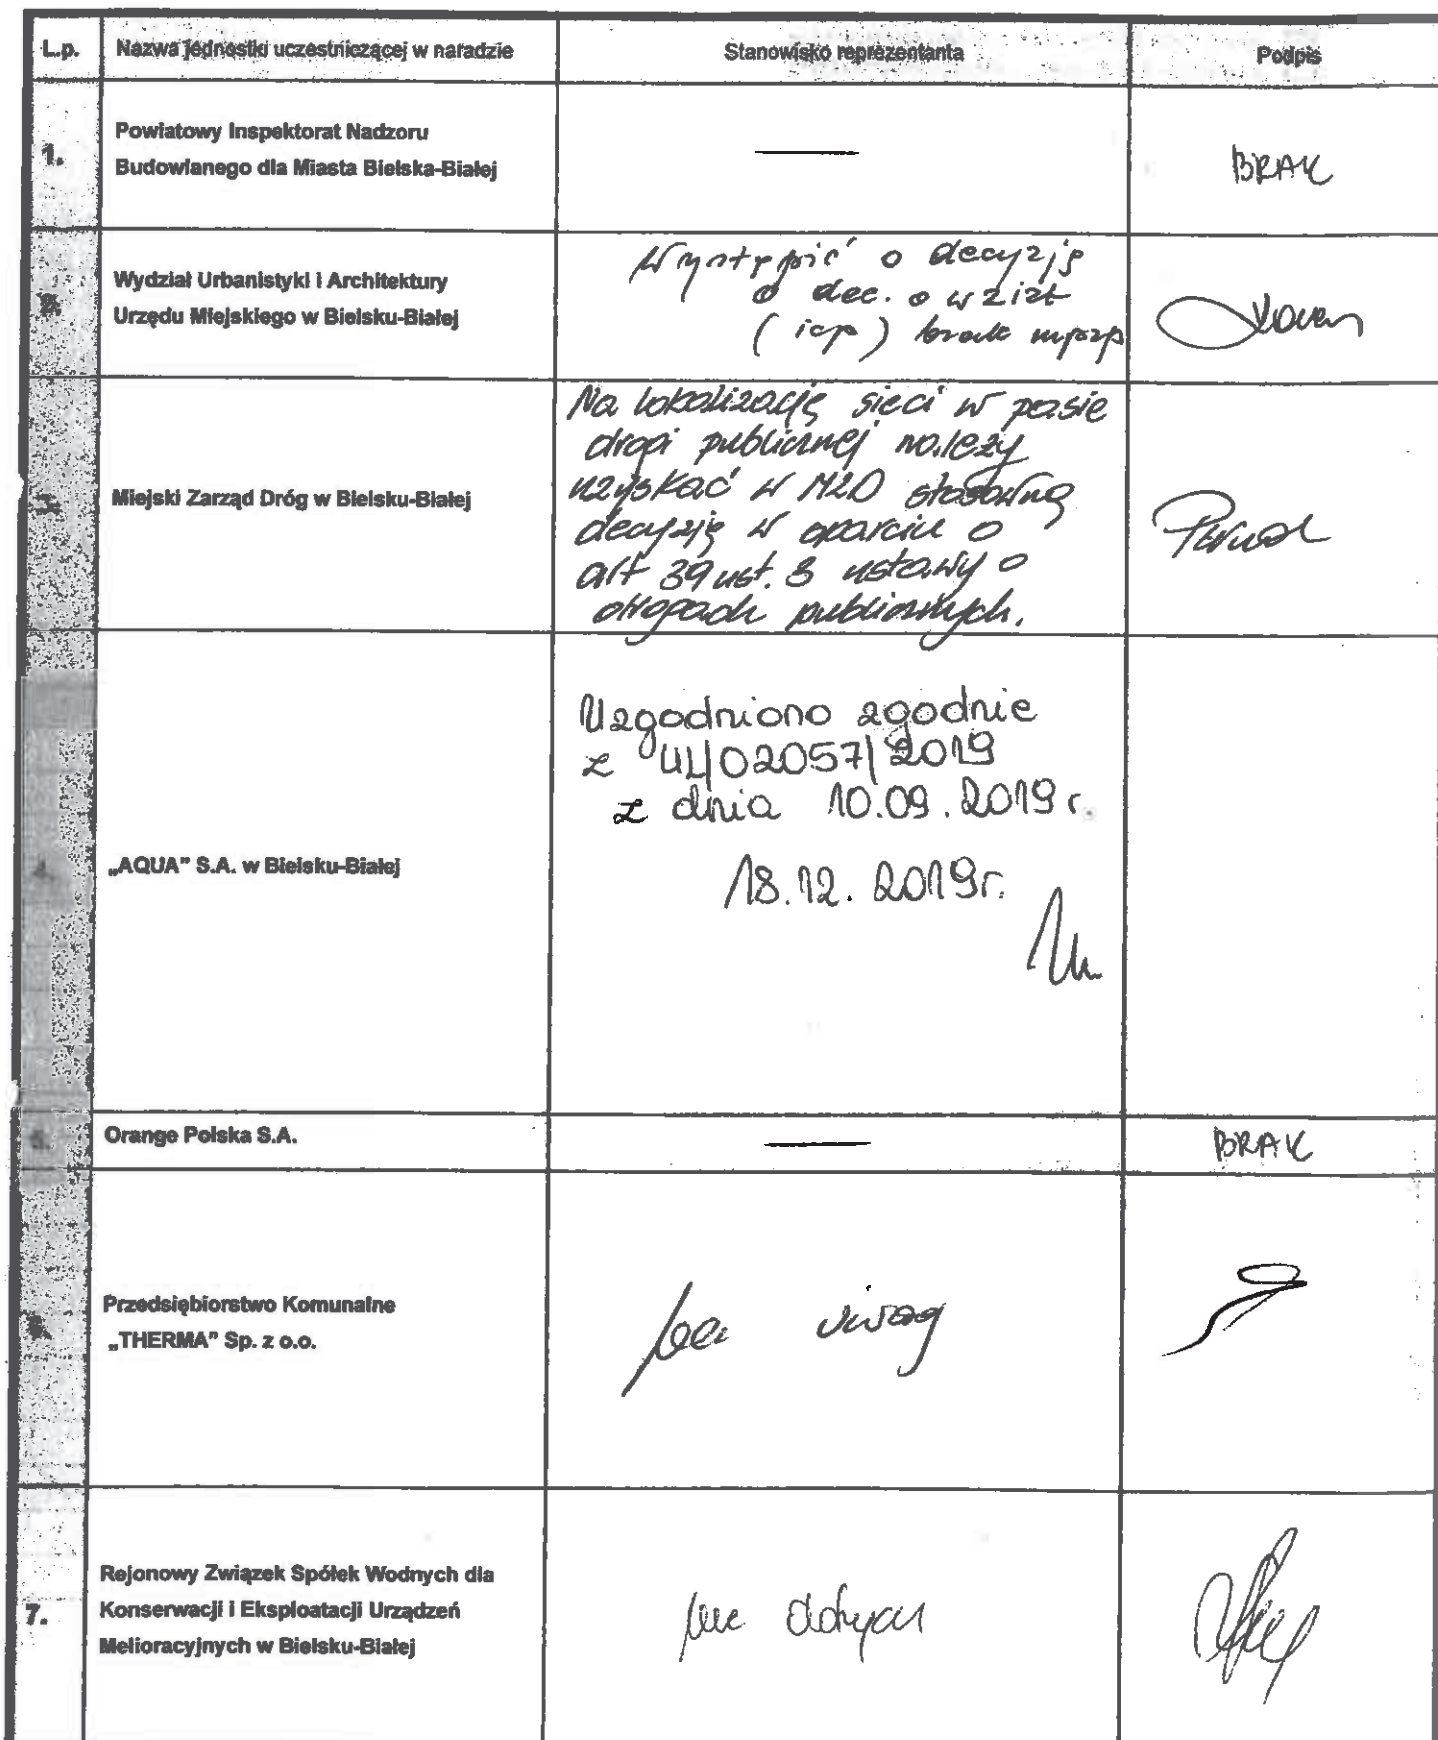 L.p. Nazwa jednostki uczestniczącej w naradzie Stanowisko reprezentanta Podpis
1. Powiatowy Inspektorat Nadzoru
Budowlanego dla Miasta Bielska-Białej
— BRAK
2. Wydział Urbanistyki i Architektury
Urzędu Miejskiego w Bielsku-Białej
Wystąpić o decyzję
o dec. o w zizt
(icp) brak mpzp
3. Miejski Zarząd Dróg w Bielsku-Białej
Na lokalizację sieci w pasie
drogi publicznej należy
uzyskać w MZD stosowną
decyzję w oparciu o
art 39 ust. 3 ustawy o
drogach publicznych.
4. „AQUA” S.A. w Bielsku-Białej
Uzgodniono zgodnie
z UL/02057/2019
z dnia 10.09.2019 r.
18.12.2019r.
5. Orange Polska S.A. — BRAK
6. Przedsiębiorstwo Komunalne
„THERMA” Sp. z o.o.
bez uwag
7. Rejonowy Związek Spółek Wodnych dla
Konserwacji i Eksploatacji Urządzeń
Melioracyjnych w Bielsku-Białej
nie dotyczy